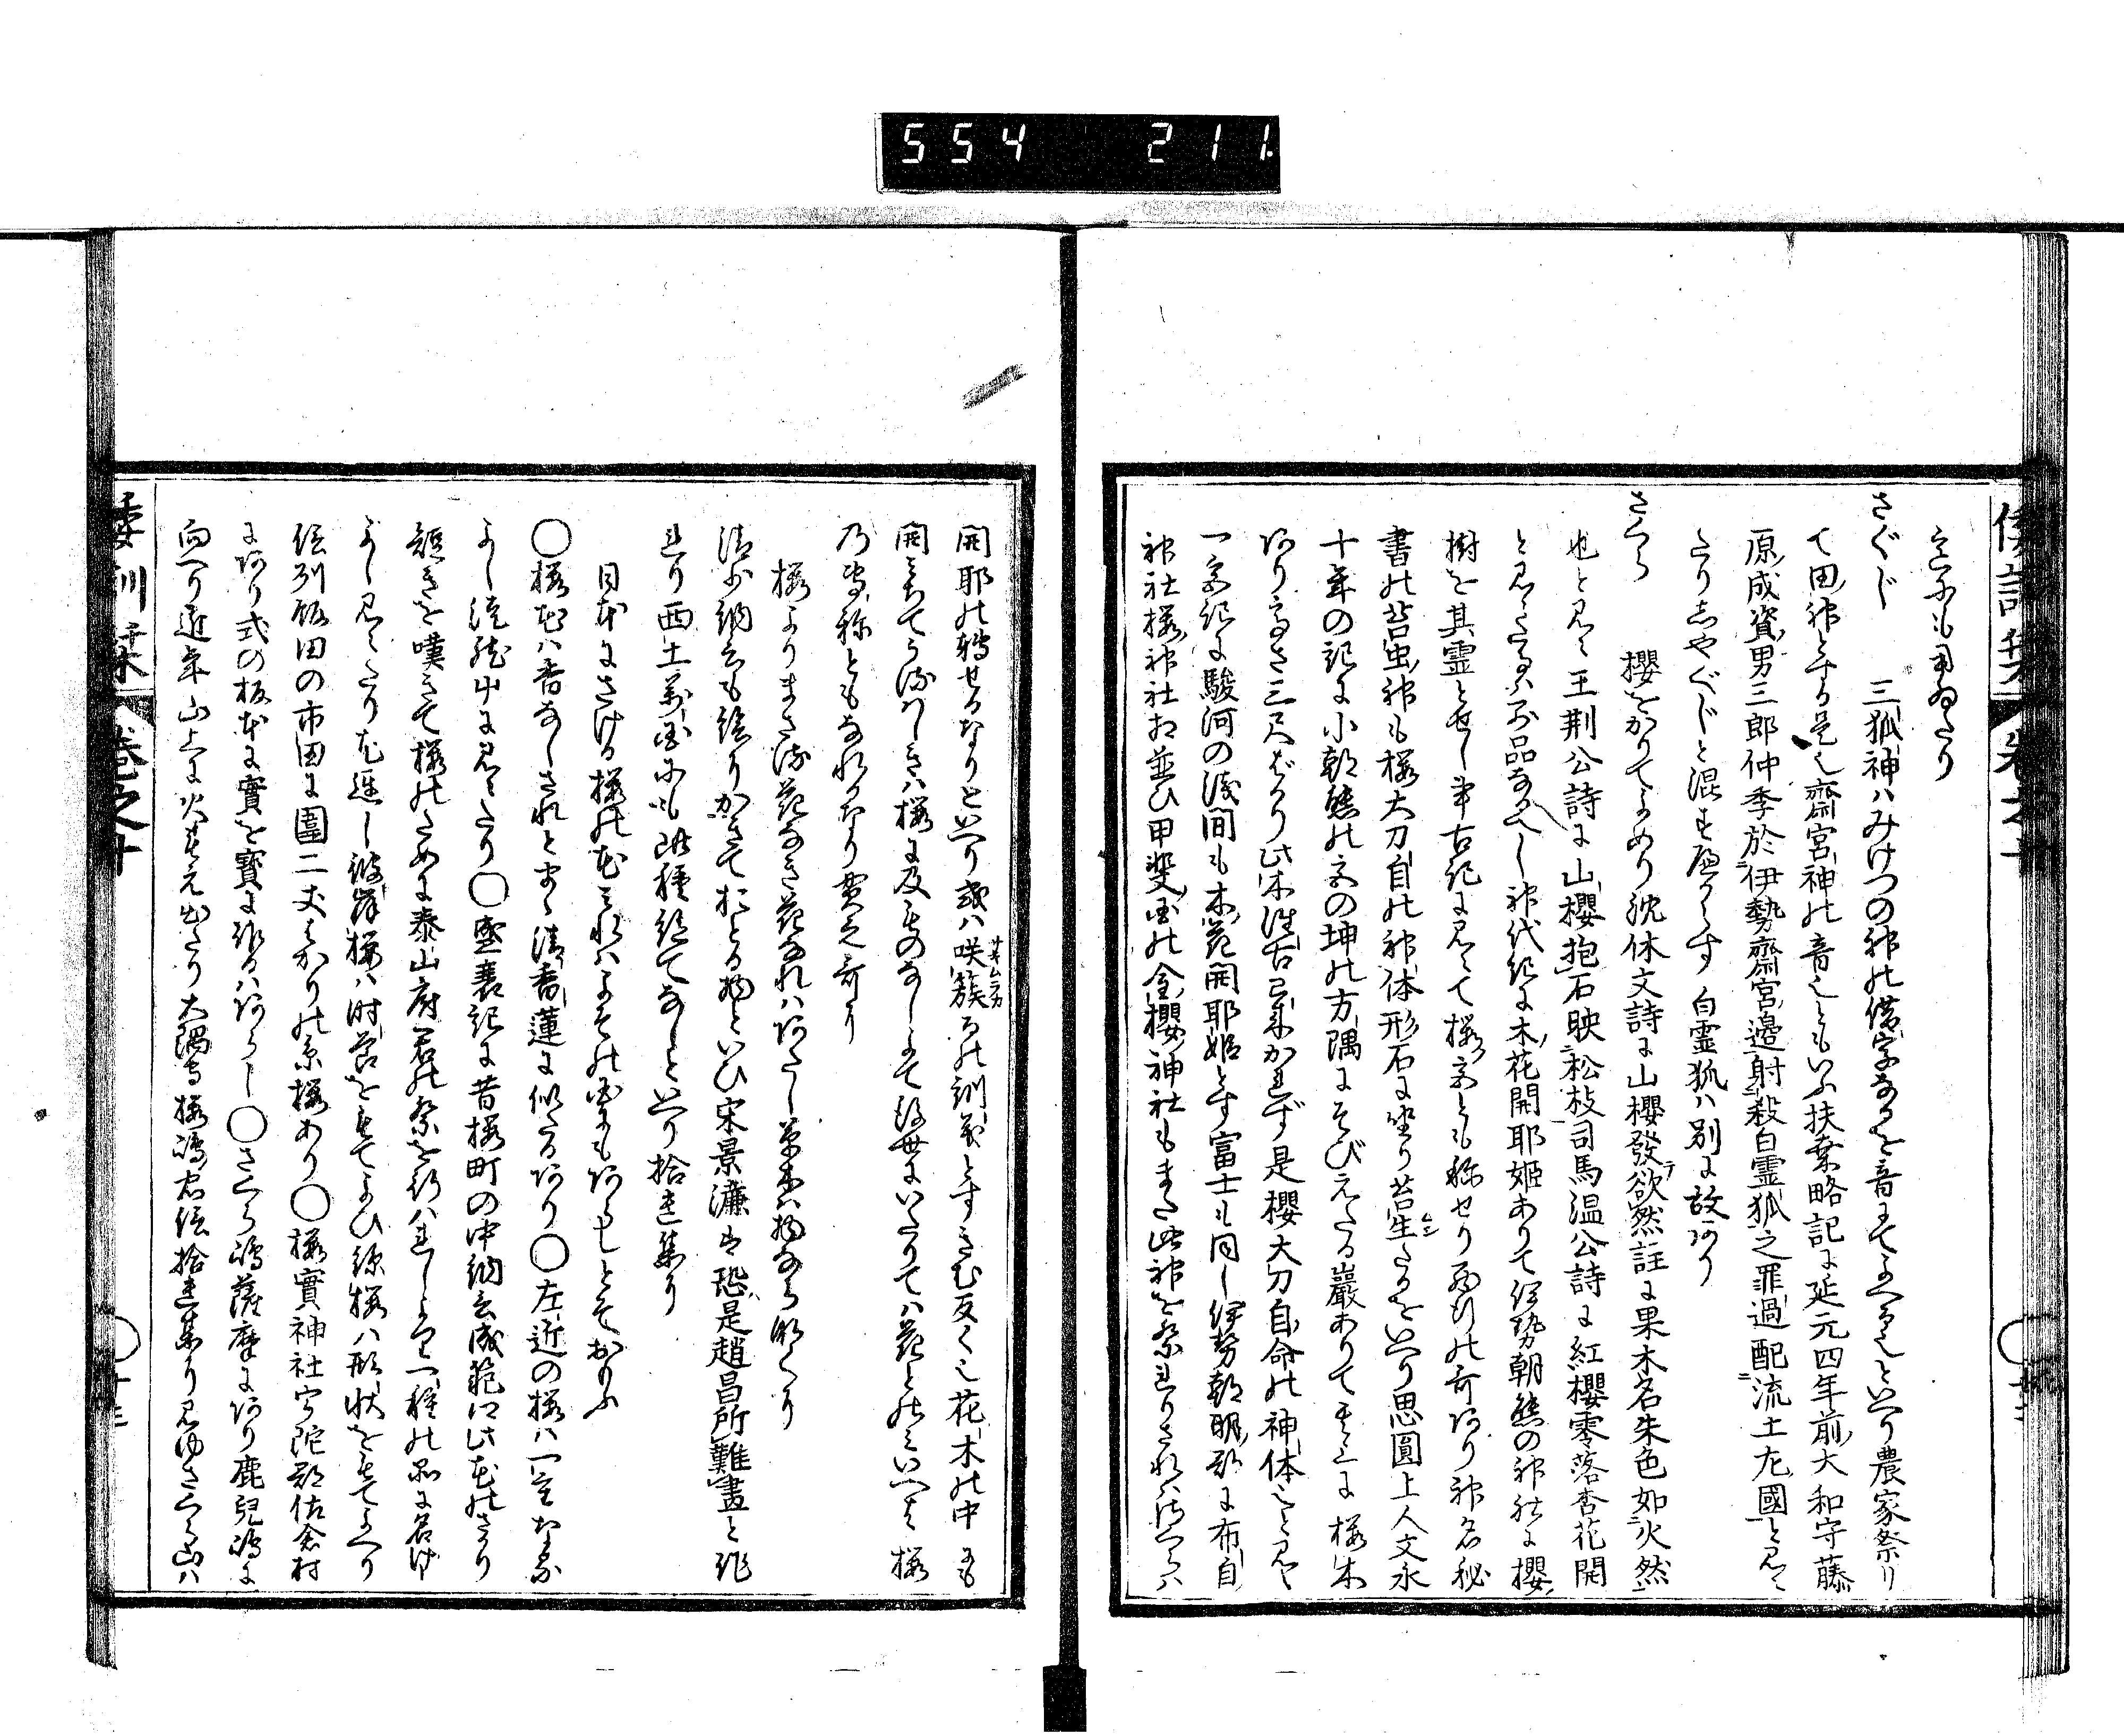 554 211
意にも用ゐたり
さぐじ 三狐神ハみけつの神の借字なるを音もてよべる也といへり農家祭り
て田神とする是也齋宮神の音也ともいふ扶桑略記に延元四年前大和守藤
原成資男三郎仲季於伊勢齋宮邉射殺白霊狐之罪過配流土佐國と見え
たりさやぐじと混すへからす 白霊狐ハ別に故あり
さくら 櫻をかりてよめり沈休文詩に山櫻發欲然註に果木名朱色如火然
也と見え王荆公詩に山櫻抱石映松枝司馬温公詩に紅櫻零落杏花開
と見えたるハ別品なるへし神代紀に木花開耶姫ありて伊勢朝熊の神社に櫻
樹を其霊とせし事古記に見えて櫻宮とも称せり西行の哥あり神名秘
書の苔虫神も櫻大刀自の神体形石に坐り苔生たるをいへり思圓上人文永
十年の記に小朝熊の宮の坤の方隅にそびえたる巖ありて其上に櫻木
あり高さ三尺ばかり此木往古已来かれず是櫻大刀自命の神体也と見え
一宮記に駿河の浅間も木花開耶姫とす富士も同し伊勢朝明郡に布自
神社櫻神社相並ひ甲斐国の金櫻神社もまた此神を祭れりされハさくらハ
開耶の轉せるなりといへり或ハ咲簇るの訓義とすきむ反く也花木の中にも
開みちてうるはしきハ櫻に及ものなしよて後世にいたりてハ花とのみいへは櫻
乃専称ともなれるなり貫之哥に
櫻よりまさる花なき花なれハあたし草木ハ物ならなくに
清少納言も絵にかきておとる物といひ宋景濂は恐是趙昌所難畫と作
れり西土萬国にも此種絶てなしといへり拾遺集に
日本にさける櫻の花みれハよその国にもあらしとそおもふ
〇櫻花ハ香なしされとまゝ清香蓮に似たるあり〇左近の櫻ハ一重なる
よし続拾中に見えたり〇盛衰記に昔櫻町の中納言成範ハ此花のさかり
短きを嘆きて櫻のために泰山府君の祭を行ハれしより一種の品に名け
よし見えたり尤遅し彼岸櫻ハ時節をもてよひ糸櫻ハ形状をもてよへり
信州飯田の市田に圍二丈はかりの糸櫻あり〇櫻實神社宇陀郡佐倉村
にあり式の板本に實を寳に作るハあらし〇さくら嶋薩摩にあり鹿児嶋に
向へり近年山上に火もえ出たり大隅守櫻嶋忠信拾遺集に見ゆさくら山ハ
倭訓栞 巻之十